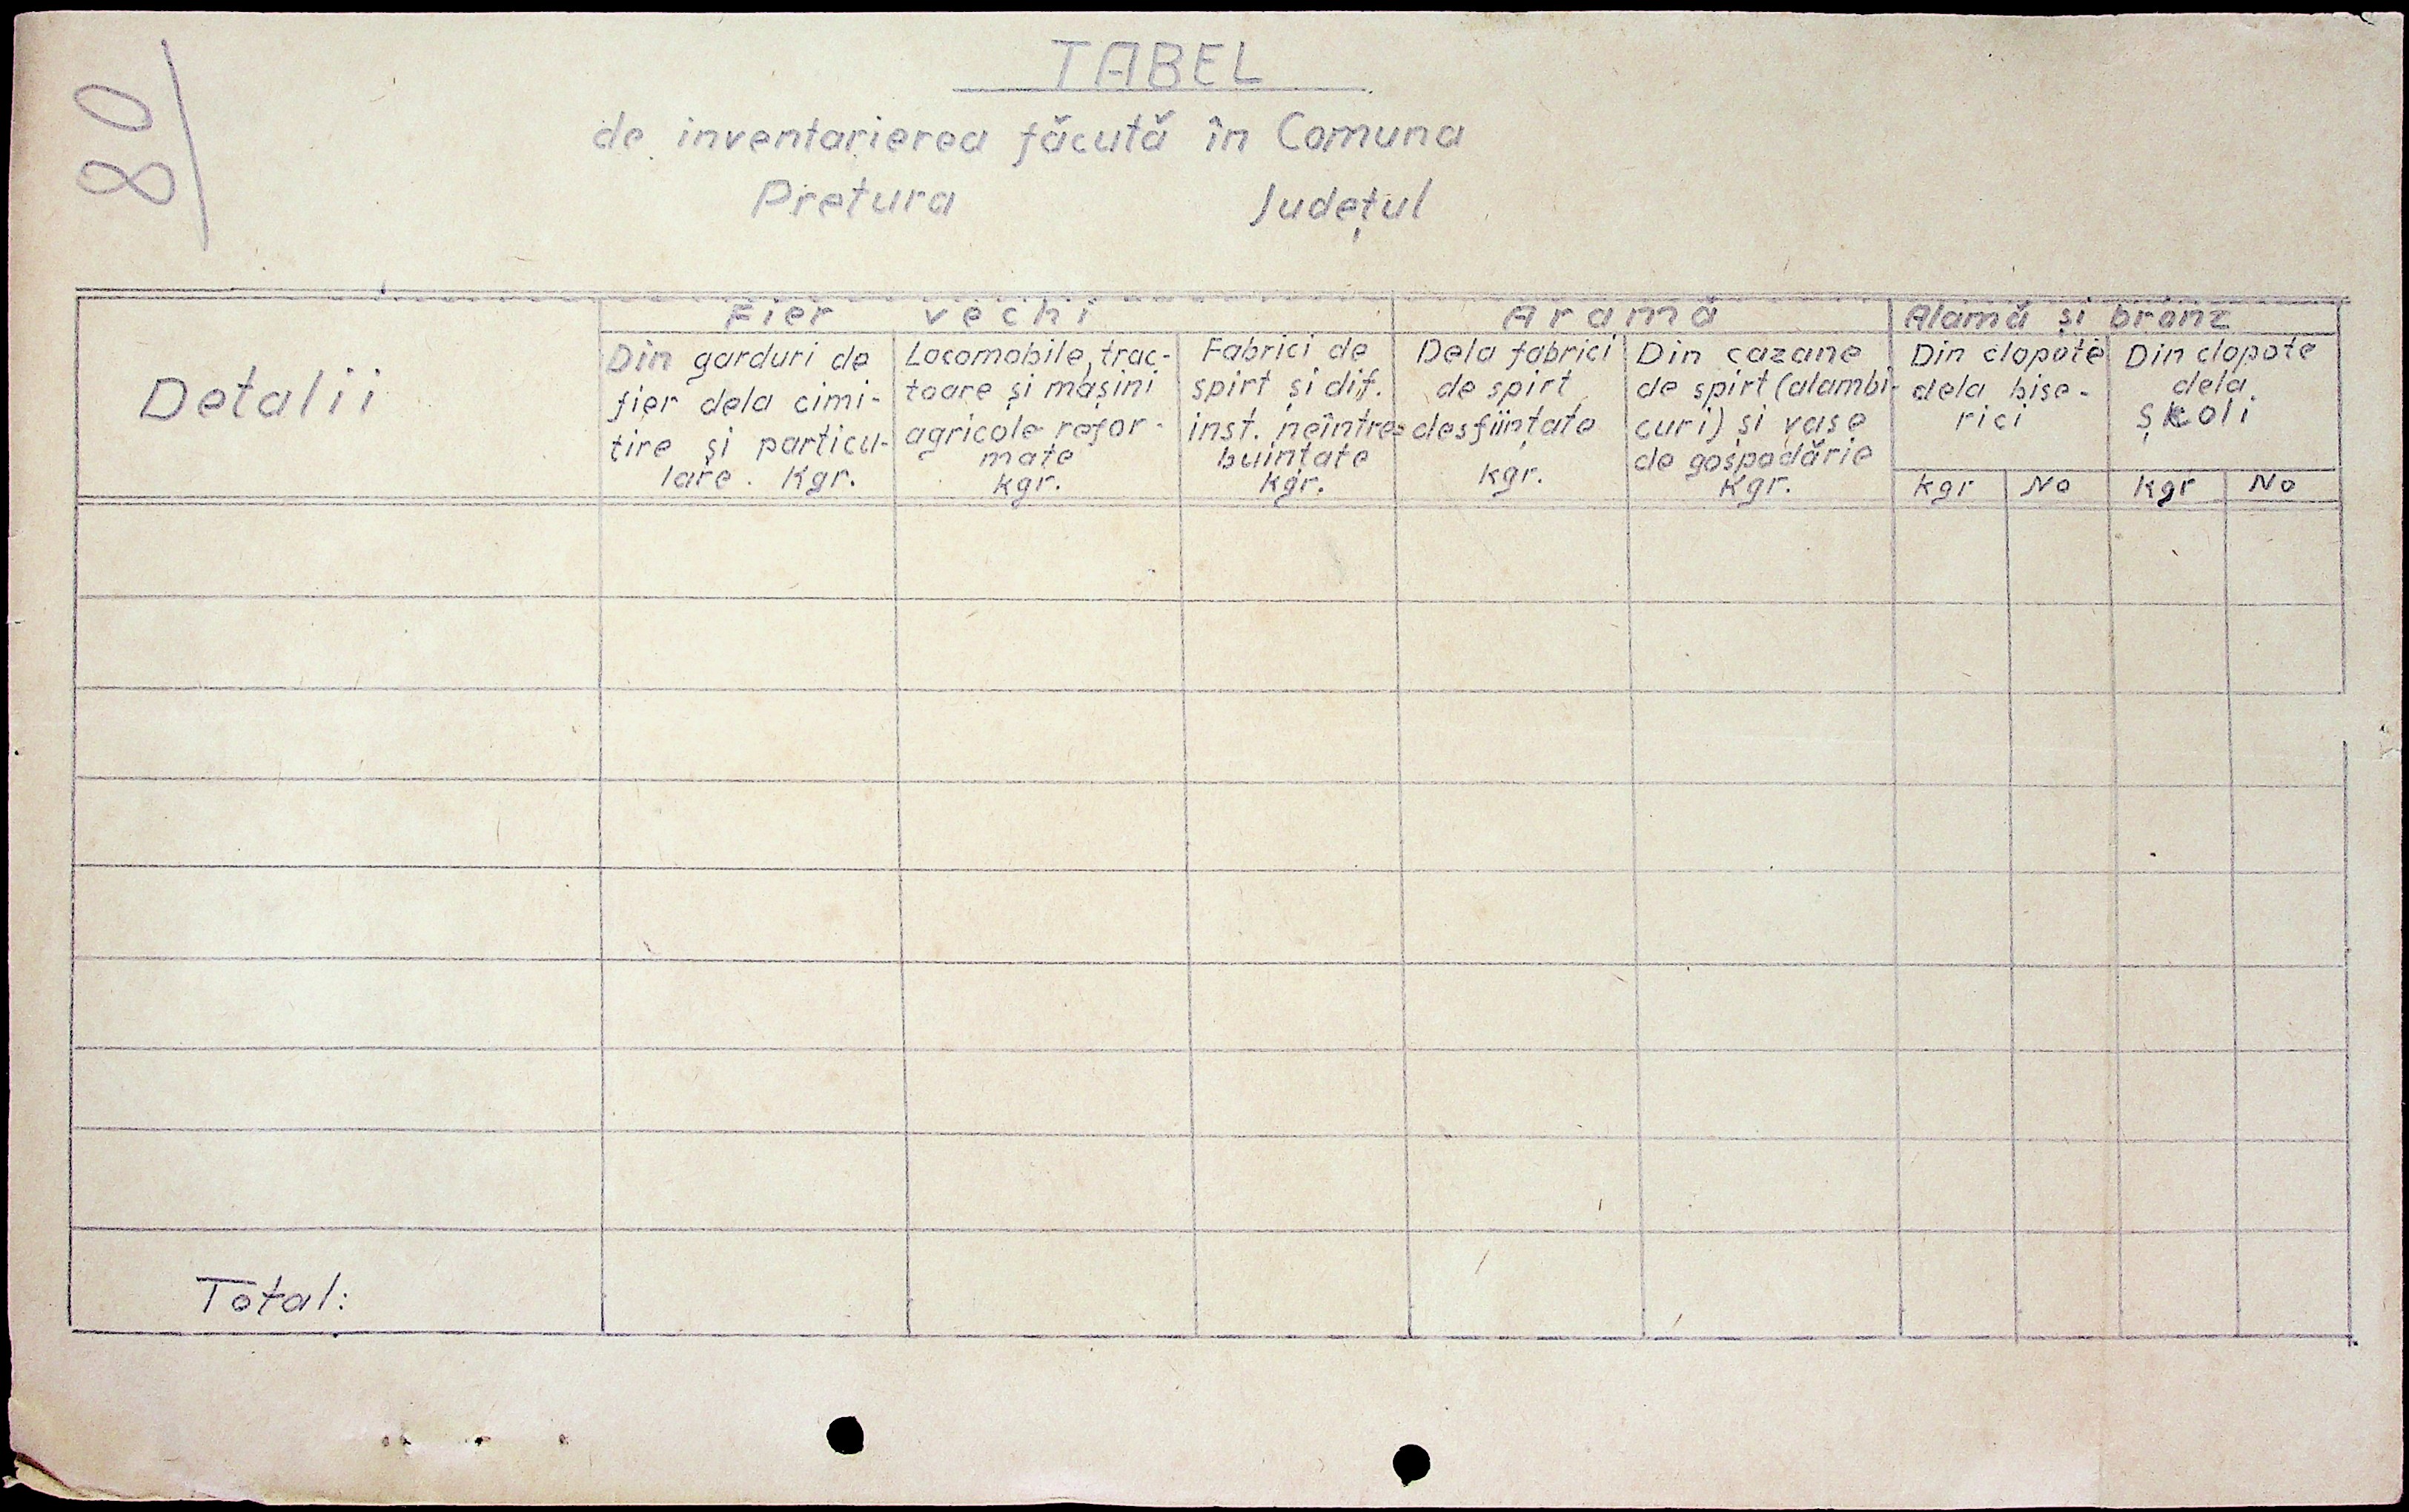 80
TABEL
de inventarierea făcută în Comuna
Pretura Județul
Detalii
Fier vechi
Din garduri de
fier dela cimi-
tire și particu-
lare. Kgr.
Locomobile, trac-
toare și mașini
agricole refor-
mate
kgr.
Fabrici de
spirt și dif.
inst. neîntre=
buințate
kgr.
Aramă
Dela fabrici
de spirt
desființate
kgr.
Din cazane
de spirt (alambi-
curi) și vase
de gospodărie
Kgr.
Alamă și bronz
Din clopote
dela bise-
rici
kgr No
Din clopote
dela
școli
kgr No
Total: